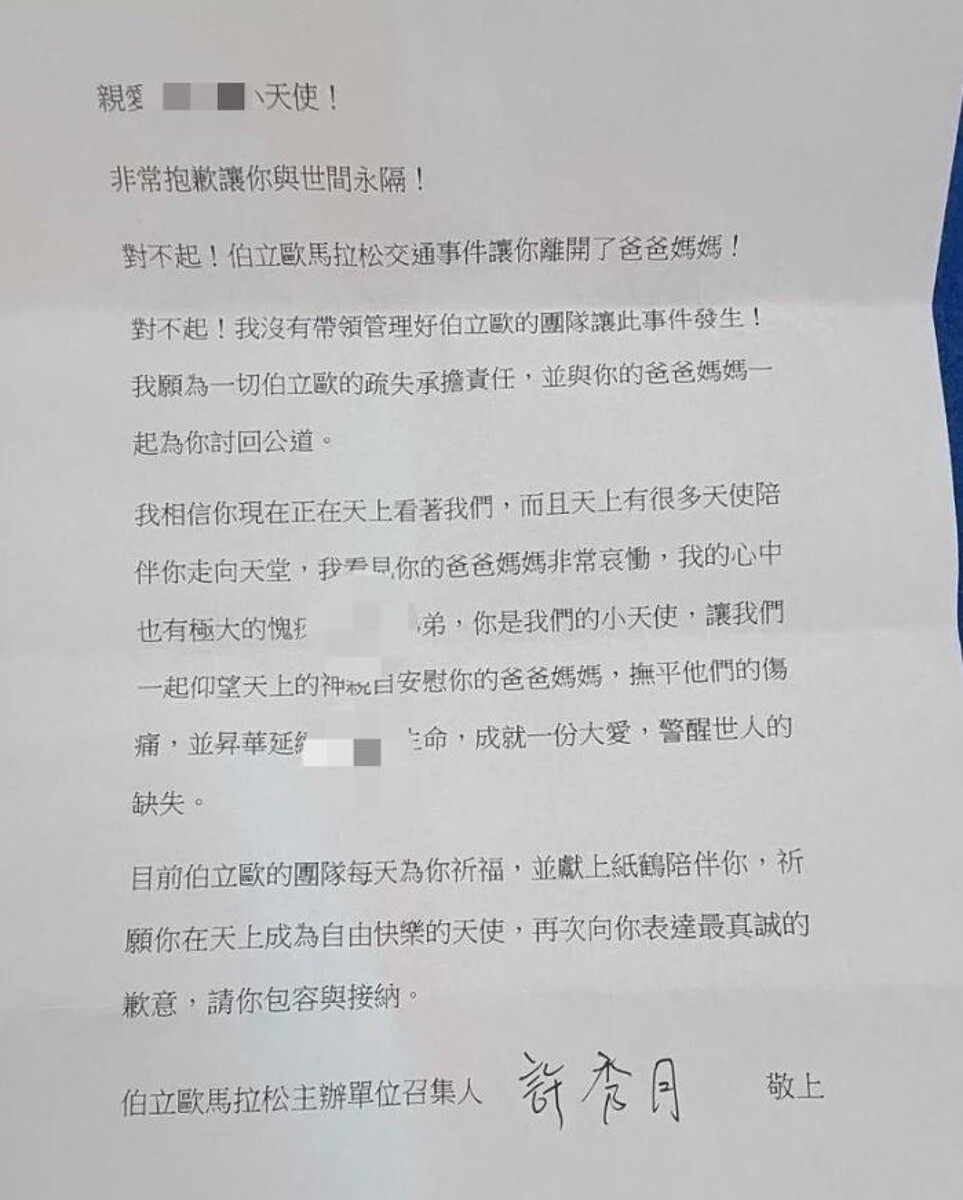 親愛 天使！
非常抱歉讓你與世間永隔！
對不起！伯立歐馬拉松交通事件讓你離開了爸爸媽媽！
對不起！我沒有帶領管理好伯立歐的團隊讓此事件發生！
我願為一切伯立歐的疏失承擔責任，並與你的爸爸媽媽一
起為你討回公道。
我相信你現在正在天上看著我們，而且天上有很多天使陪
伴你走向天堂，我看見你的爸爸媽媽非常哀慟，我的心中
也有極大的愧 弟，你是我們的小天使，讓我們
一起仰望天上的神親自安慰你的爸爸媽媽，撫平他們的傷
痛，並昇華延 命，成就一份大愛，警醒世人的
缺失。
目前伯立歐的團隊每天為你祈福，並獻上紙鶴陪伴你，祈
願你在天上成為自由快樂的天使，再次向你表達最真誠的
歉意，請你包容與接納。
伯立歐馬拉松主辦單位召集人 許秀月 敬上